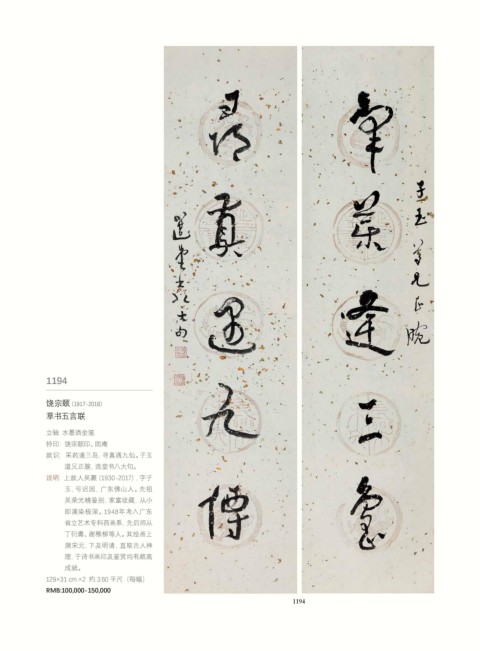 采藥逢三島
子玉道兄正腕
尋真遇九僊
選堂書八大句
1194
饶宗颐 (1917-2018)
草书五言联
立轴 水墨洒金笺
钤印:饶宗颐印、固庵
款识:采药逢三岛,寻真遇九仙。子玉
道兄正腕,选堂书八大句。
说明:上款人吴灏(1930-2017),字子
玉,号迟园,广东佛山人。先祖
吴荣光精鉴别,家富收藏,从小
即濡染极深。1948年考入广东
省立艺术专科西画系,先后师从
丁衍庸、谢稚柳等人。其绘画上
溯宋元,下及明清,直取古人神
理,于诗书画印及鉴赏均有颇高
成就。
129×31 cm ×2 约 3.60 平尺(每幅)
RMB:100,000-150,000
1194